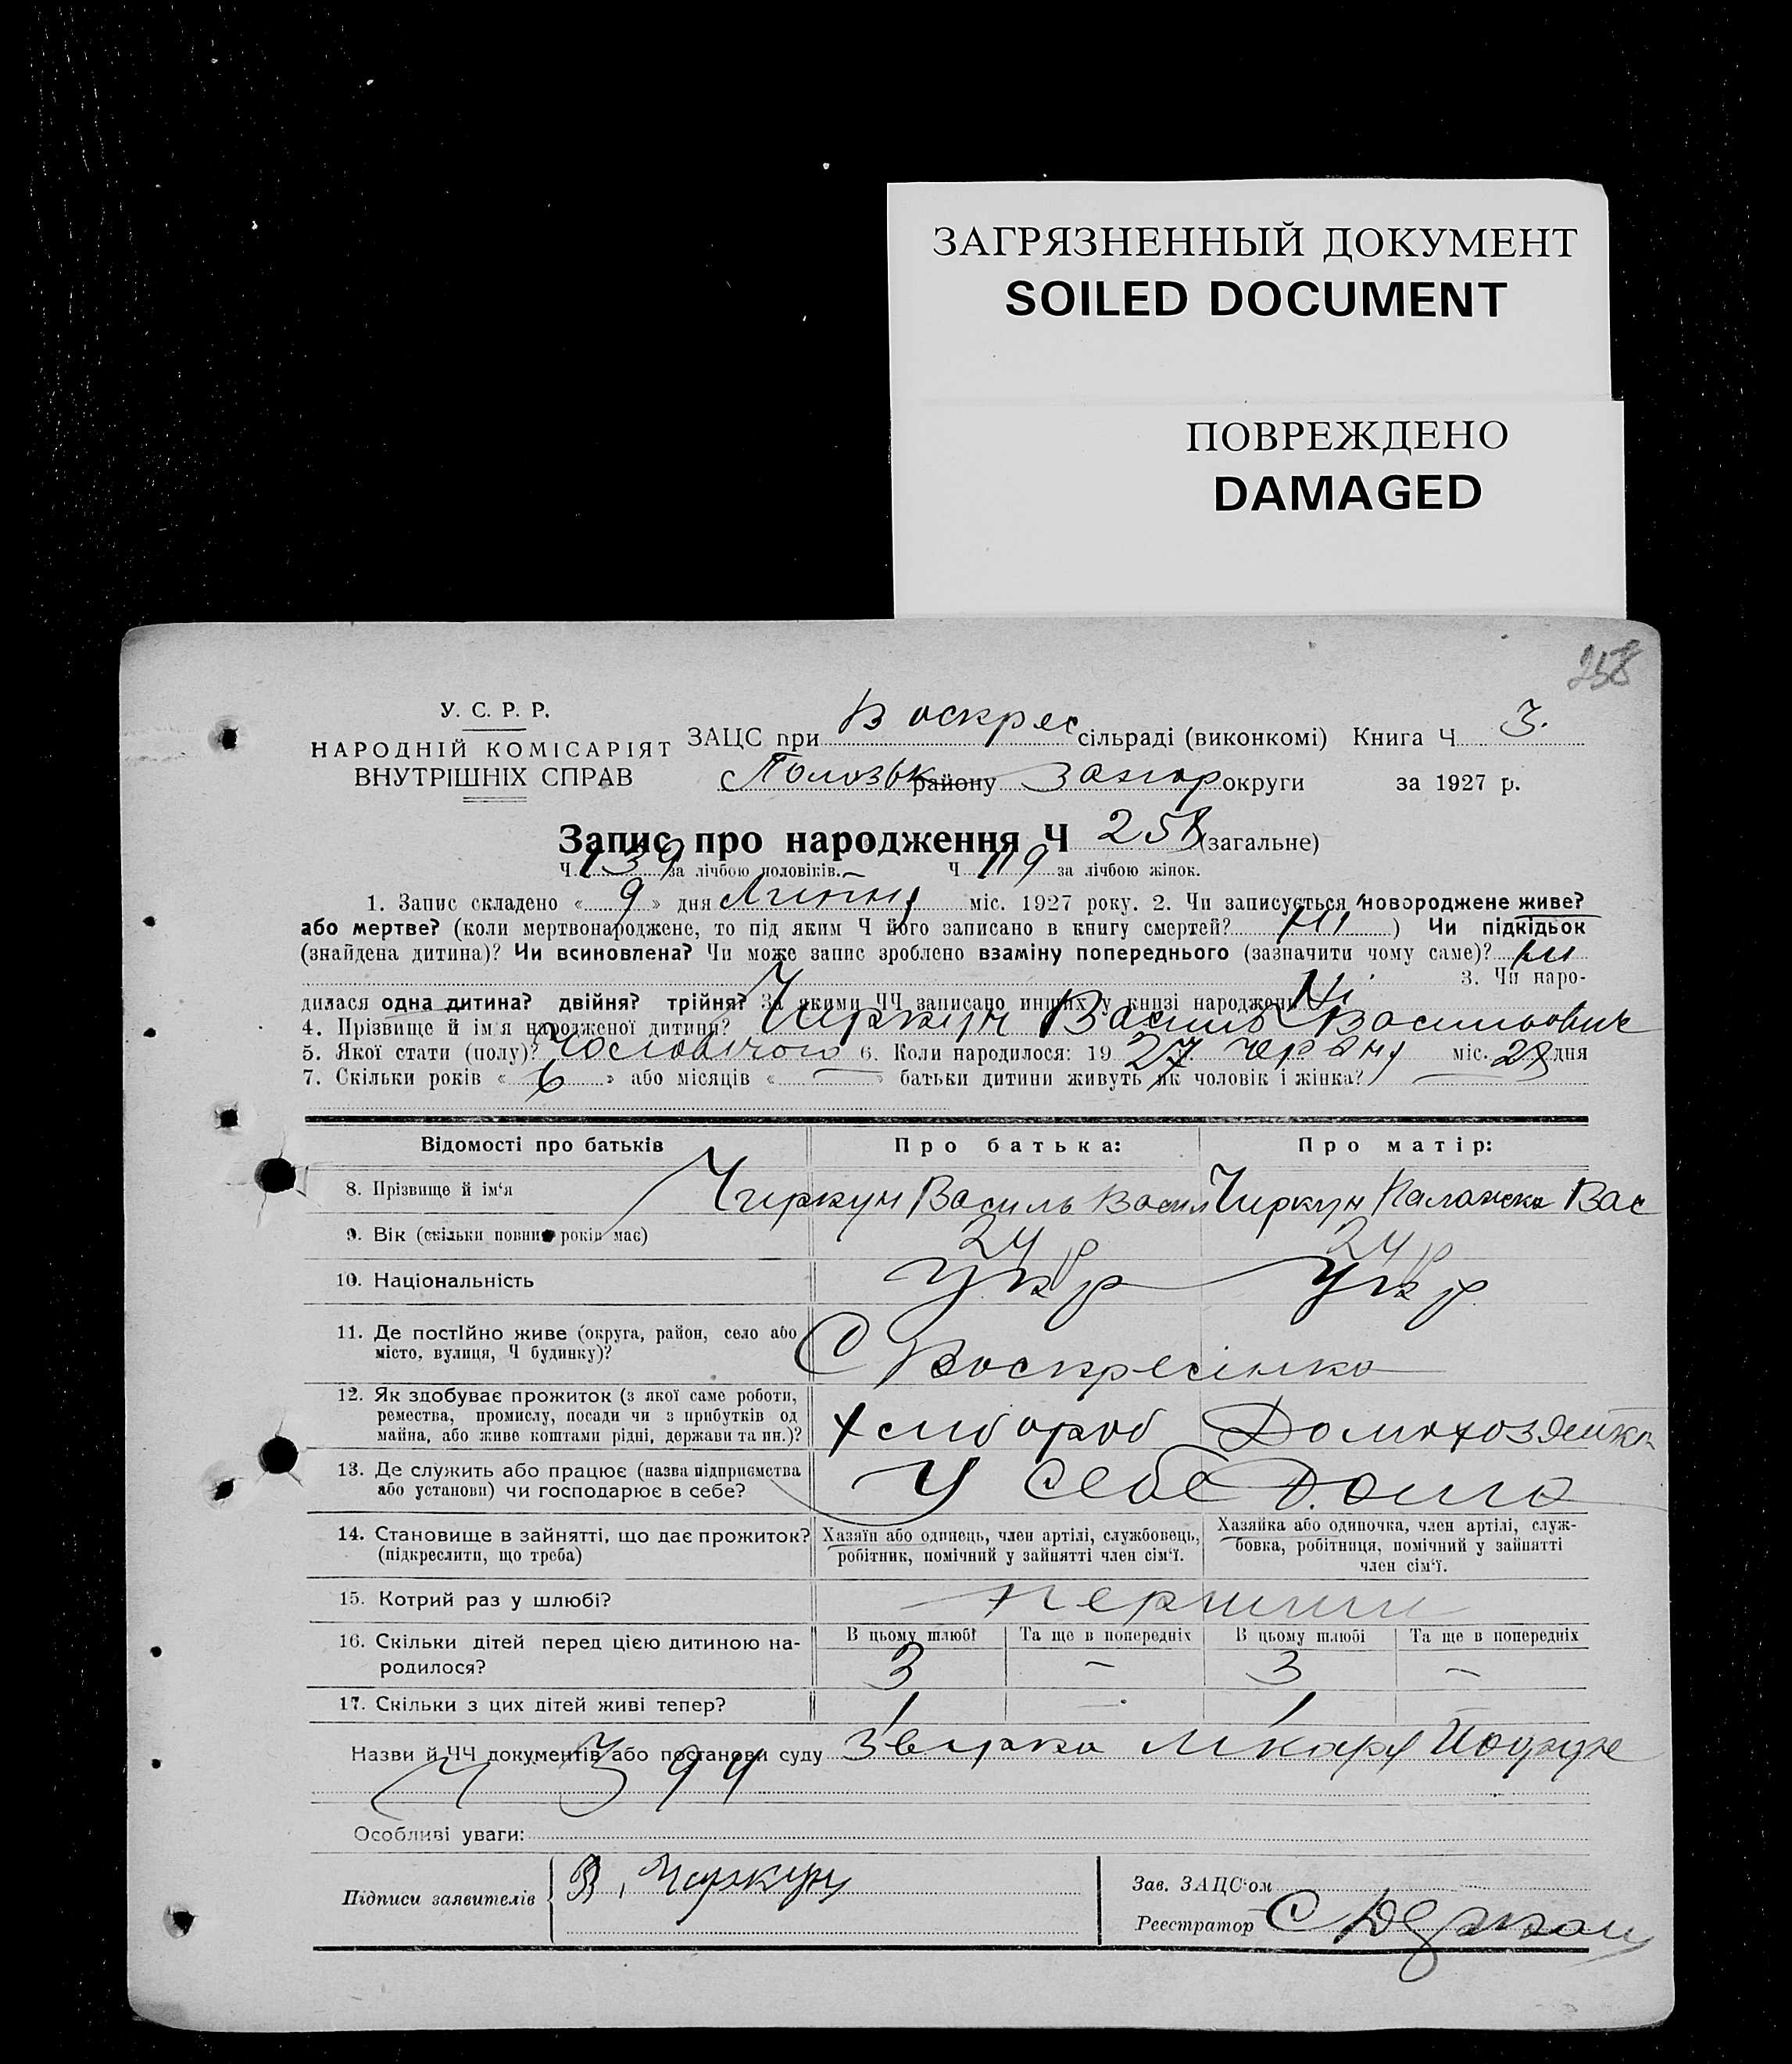 ЗАГРЯЗНЕННЫЙ ДОКУМЕНТ
SOILED DOCUMENT
ПОВРЕЖДЕНО
DAMAGED
258
У. С. Р. Р.
НАРОДНІЙ КОМІСАРІЯТ
ВНУТРІШНІХ СПРАВ
ЗАЦС при Воскрес сільраді (виконкомі) Книга Ч 3.
району Запор округи за 1927 р.
Запис про народження Ч 258 (загальне)
Ч 139 за лічбою чоловіків. Ч 119 за лічбою жінок.
1. Запис складено « 9 » дня Липня міс. 1927 року. 2. Чи записується новороджене живе?
або мертве? (коли мертвонароджене, то під яким Ч його записано в книгу смертей? Ні ) Чи підкідьок
(знайдена дитина)? Чи всиновлена? Чи може запис зроблено взаміну попереднього (зазначити чому саме)? ні
3. Чи наро-
дилася одна дитина? двійня? трійня? За якими ЧЧ записано инших у книзі народжень Ні
4. Прізвище й ім'я народженої дитини? Чиркун Василь Васильович
5. Якої стати (полу)? 6. Коли народилося: 19 27 Червня міс. дня
7. Скільки років « 6 » або місяців « — » батьки дитини живуть як чоловік і жінка? —
Відомості про батьків Про батька: Про матір:
8. Прізвище й ім'я Чиркун Василь Васил Чиркун Палажка Вас
9. Вік (скільки повних років має) 24 р 24 р
10. Національність Укр Укр
11. Де постійно живе (округа, район, село або
місто, вулиця, Ч будинку)? С Воскресінка
12. Як здобуває прожиток (з якої саме роботи,
ремества, промислу, посади чи з прибутків од
майна, або живе коштами рідні, держави та ин.)? Хлибороб Домохозяйка
13. Де служить або працює (назва підприємства
або установи) чи господарює в себе? У себе дома
14. Становище в зайнятті, що дає прожиток?
(підкреслити, що треба)
Хазяїн або одинець, член артілі, службовець,
робітник, помічний у зайнятті член сім'ї.
Хазяйка або одиночка, член артілі, служ-
бовка, робітниця, помічний у зайнятті
член сім'ї.
15. Котрий раз у шлюбі? перший
16. Скільки дітей перед цією дитиною на-
родилося?
В цьому шлюбі Та ще в попередніх В цьому шлюбі Та ще в попередніх
3 — 3 —
17. Скільки з цих дітей живі тепер? 1 — 1
Назви й ЧЧ документів або постанови суду
Ч 394
Особливі уваги:
Підписи заявителів В. Чиркун
Зав. ЗАЦС'ом
Реєстратор